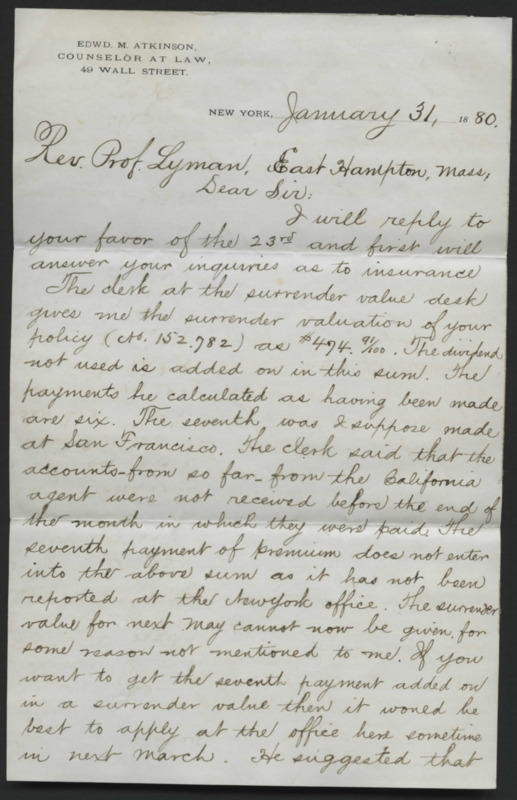 EDWD. M. ATKINSON,
COUNSELOR AT LAW,
49 WALL STREET.
NEW YORK, January 31, 1880.
Rev. Prof. Lyman, East Hampton, Mass,
Dear Sir:
I will reply to
your favor of the 23rd and first will
answer your inquiries as to insurance
The clerk at the surrender value desk
gives me the surrender valuation of your
policy (No. 152.782) as $474. 91/100. The dividend
not used is added on in this sum. The
payments he calculated as having been made
are six. The seventh was I suppose made
at San Francisco. The clerk said that the
accounts from so far - from the California
agent were not received before the end of
the month in which they were paid. The
seventh payment of premium does not enter
into the above sum as it has not been
reported at the Newyork office. The surrender
value for next May cannot now be given, for
some reason not mentioned to me. If you
want to get the seventh payment added on
in a surrender value then it woned be
best to apply at the office here sometime
in next March. He suggested that